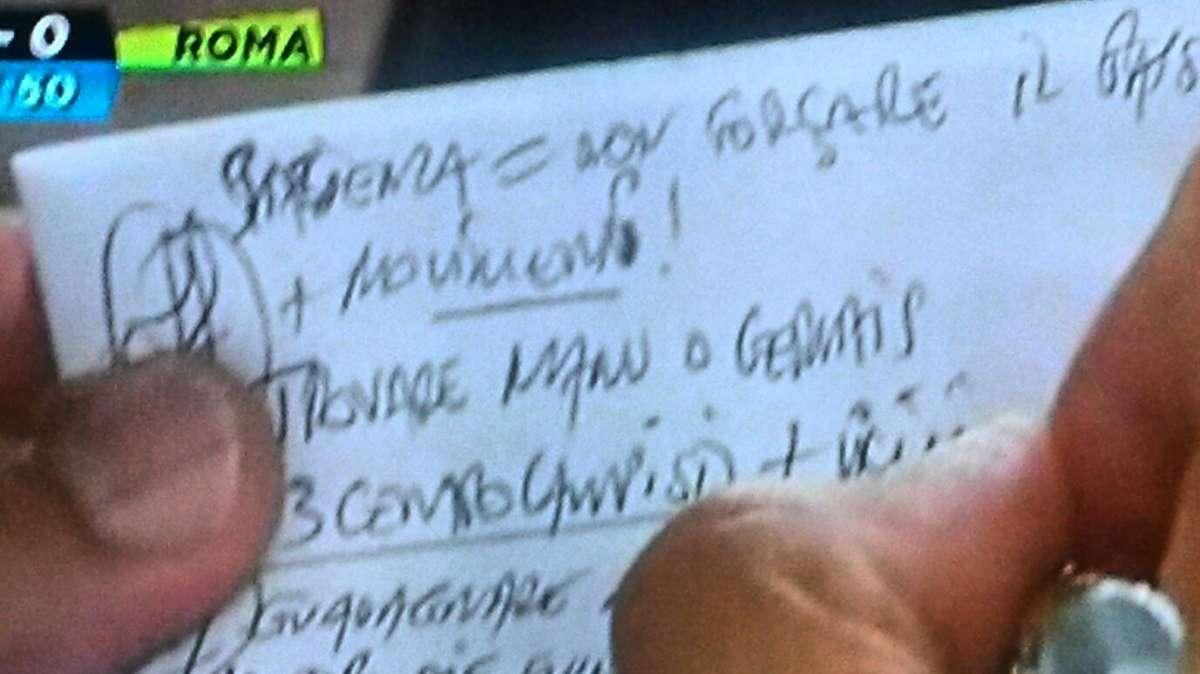 - 0 ROMA
/50
PAZIENZA = NON FORÇARE IL PAS
+ MOVIMENTO!
TROVARE MANU O GERVAIS
3 CENTROCAMPISTI +
GUADAGNARE